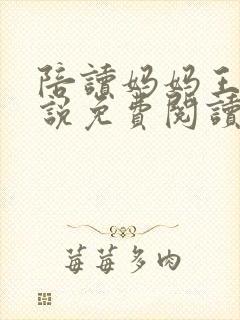 陪讀妈妈王
說免費閱讀
莓莓多肉